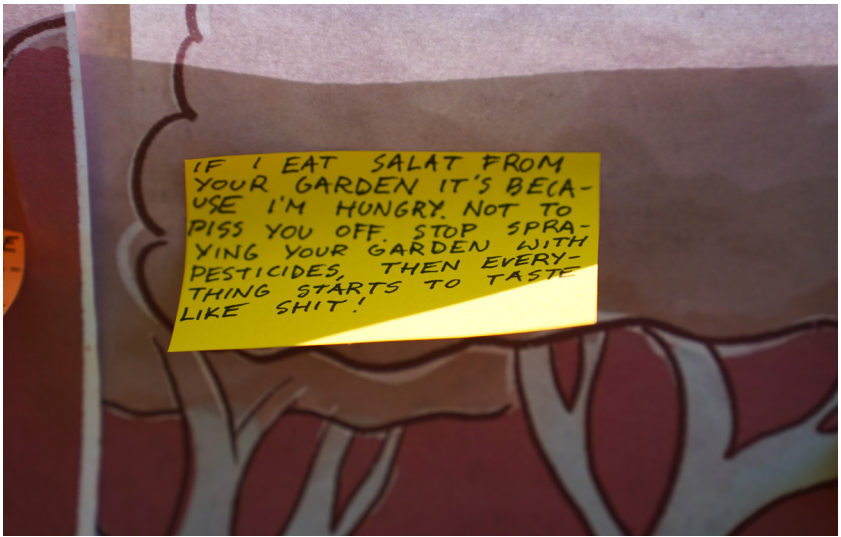 IF I EAT SALAT FROM
YOUR GARDEN IT'S BECA-
USE I'M HUNGRY. NOT TO
PISS YOU OFF. STOP SPRA-
YING YOUR GARDEN WITH
PESTICIDES, THEN EVERY-
THING STARTS TO TASTE
LIKE SHIT!